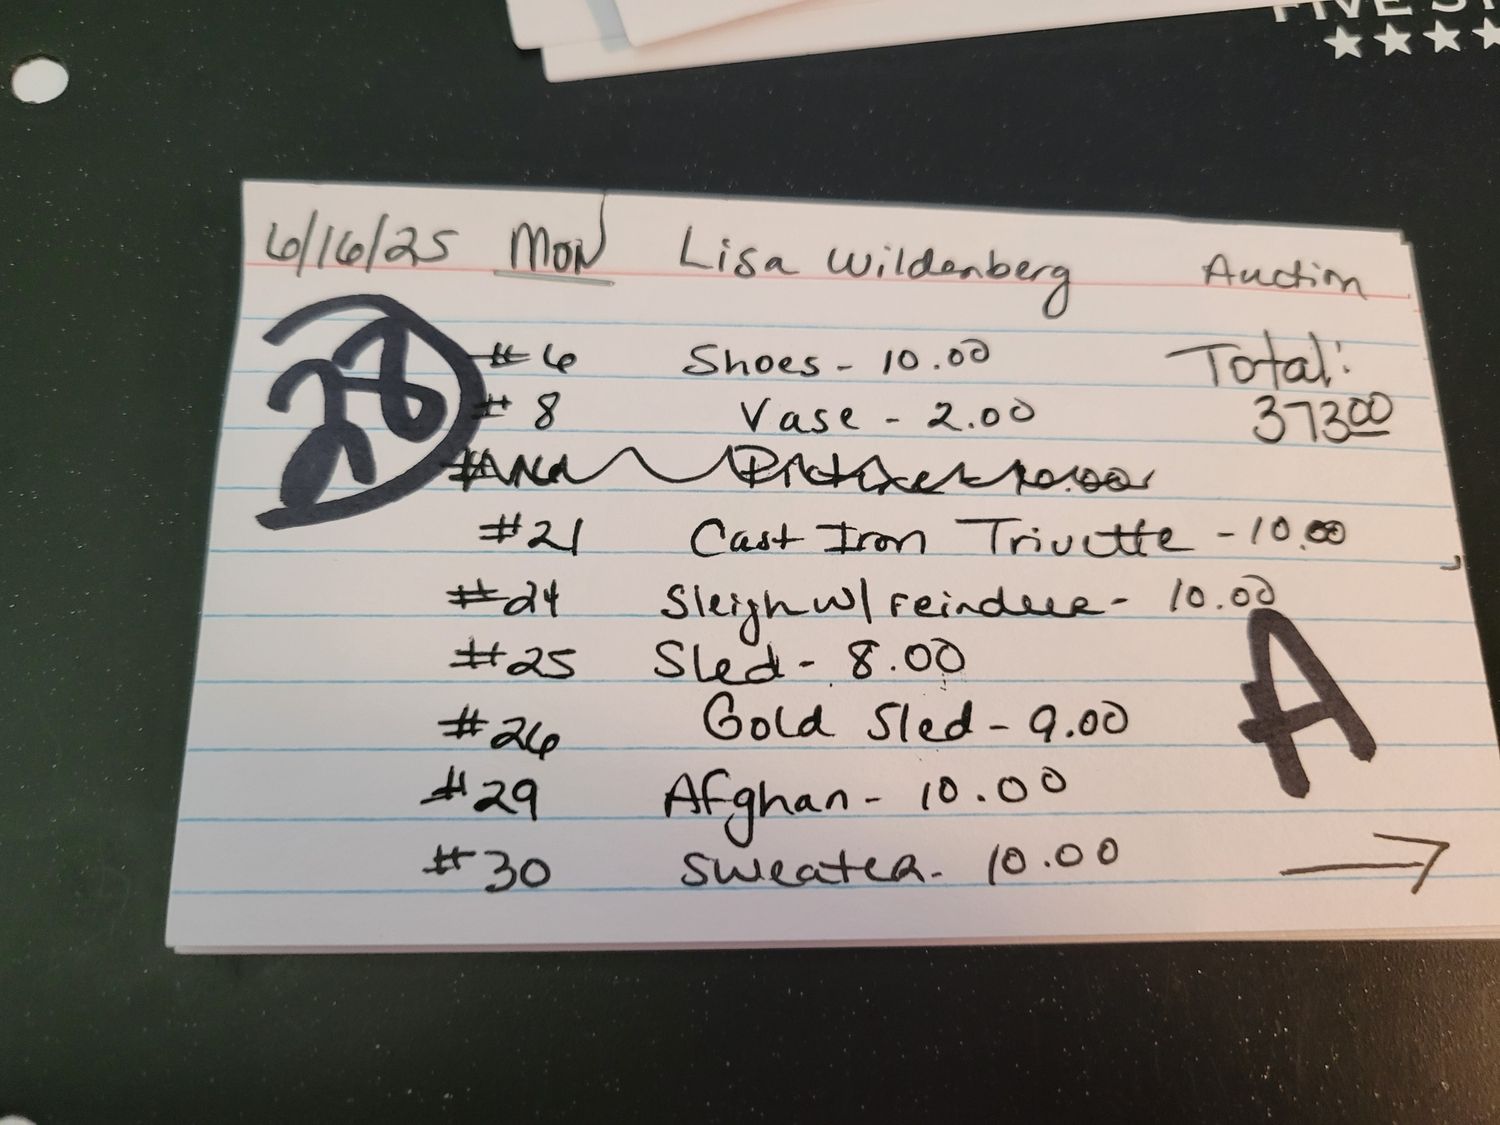 FIVE ST
6/16/25 MON Lisa Wildenberg Auction
28
#6 Shoes - 10.00 Total:
#8 Vase - 2.00 37300
#21 Cast Iron Trivette - 10.00
#24 Sleigh w/ reindeer - 10.00
#25 Sled - 8.00
A
#26 Gold Sled - 9.00
#29 Afghan - 10.00
#30 Sweater - 10.00 →